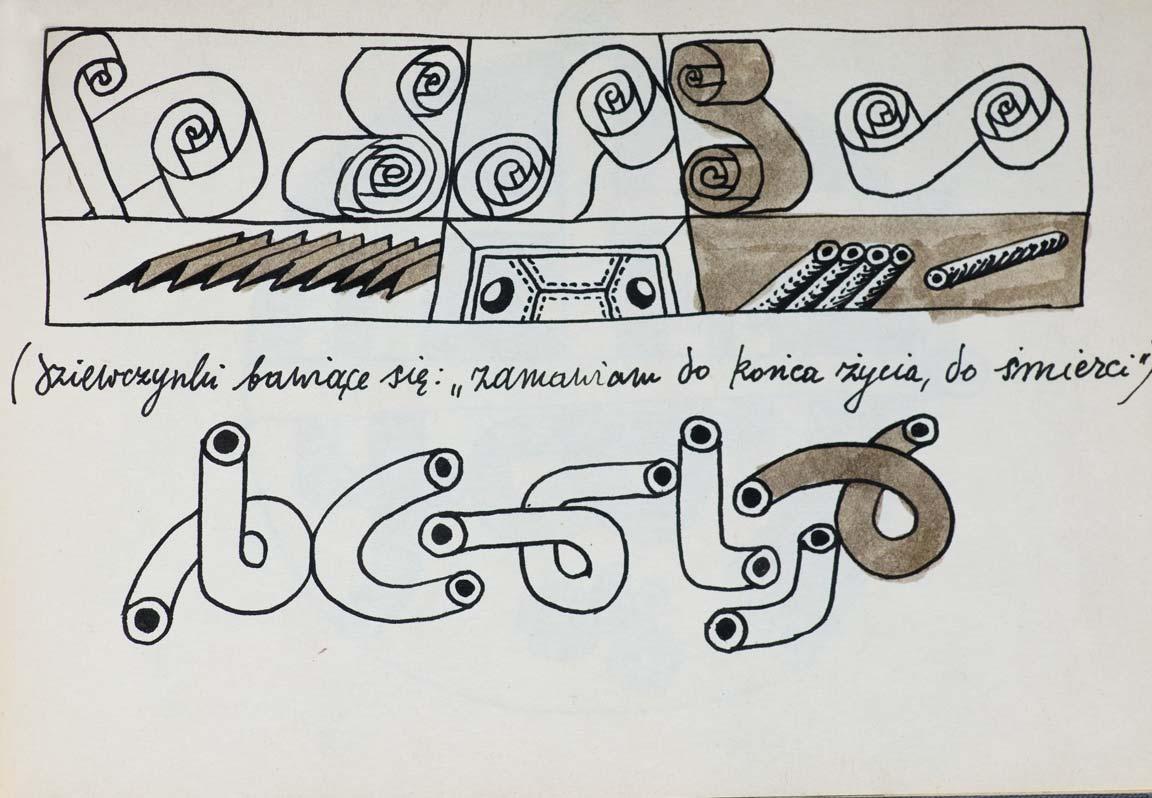 (dziewczynki bawiące się: „zamawiam do końca życia, do śmierci")